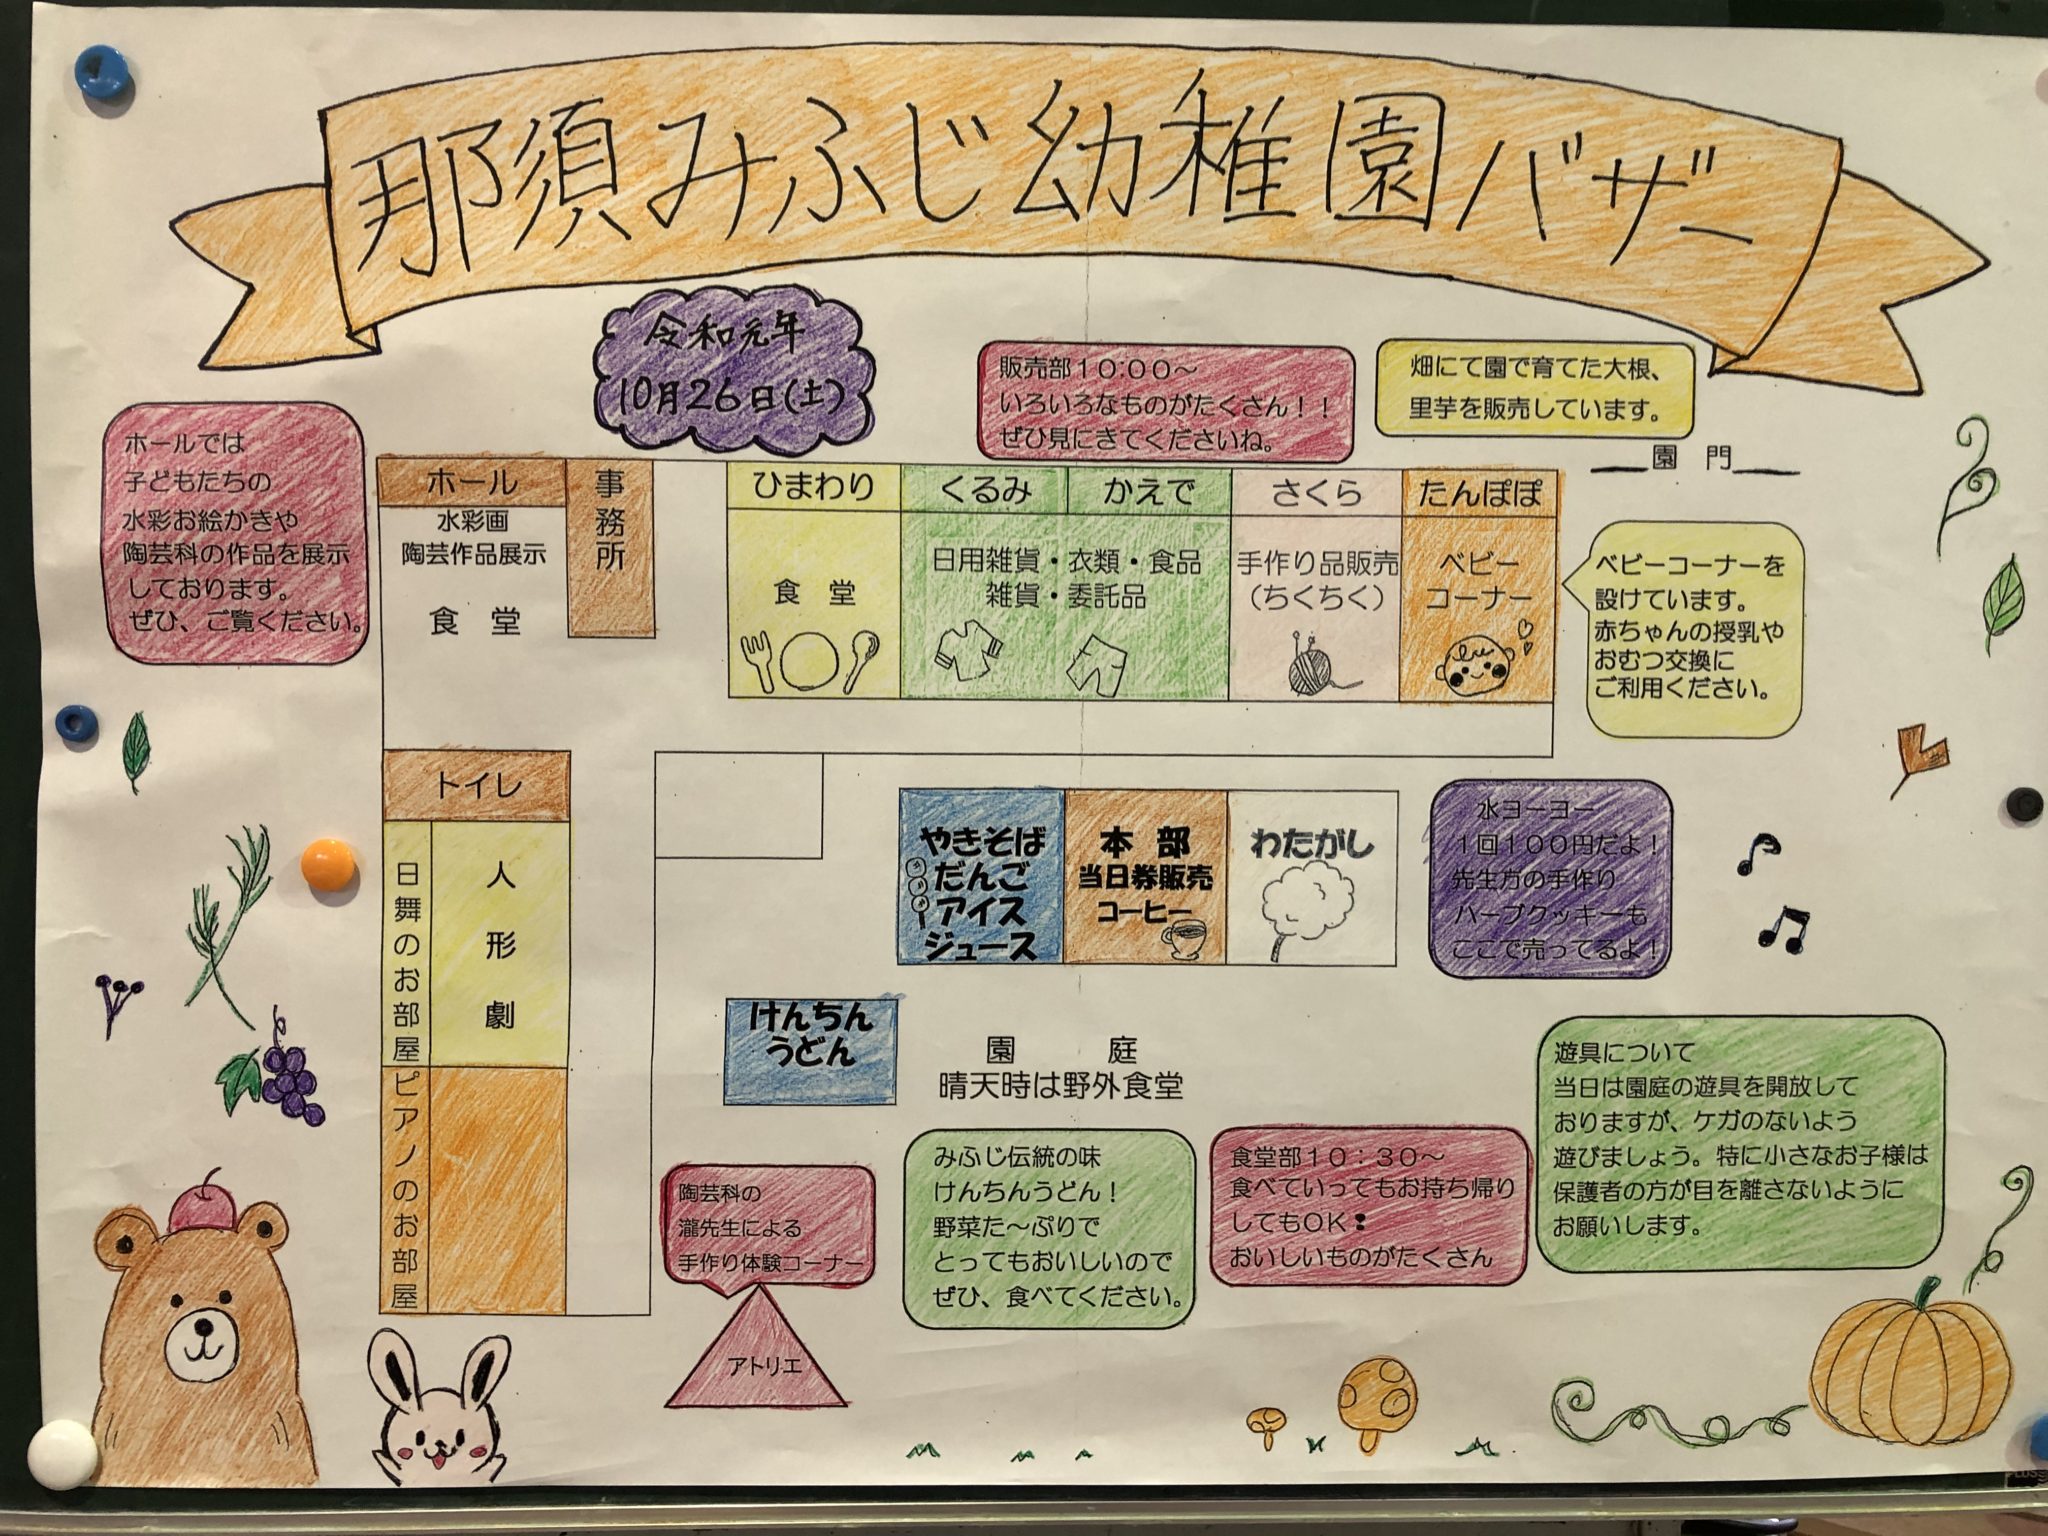 那須みふじ幼稚園バザー
令和元年
10月26日(土)
販売部10:00～
いろいろなものがたくさん！！
ぜひ見にきてくださいね。
畑にて園で育てた大根、
里芋を販売しています。
園 門
ホールでは
子どもたちの
水彩お絵かきや
陶芸科の作品を展示
しております。
ぜひ、ご覧ください。
ホール
水彩画
陶芸作品展示
食 堂
事務所
ひまわり
食 堂
くるみ
かえで
日用雑貨・衣類・食品
雑貨・委託品
さくら
手作り品販売
（ちくちく）
たんぽぽ
ベビー
コーナー
ベビーコーナーを
設けています。
赤ちゃんの授乳や
おむつ交換に
ご利用ください。
トイレ
日舞のお部屋
人形劇
ピアノのお部屋
やきそば
だんご
アイス
ジュース
本 部
当日券販売
コーヒー
わたがし
水ヨーヨー
1回100円だよ！
先生方の手作り
ハーブクッキーも
ここで売ってるよ！
けんちん
うどん
園 庭
晴天時は野外食堂
遊具について
当日は園庭の遊具を開放して
おりますが、ケガのないよう
遊びましょう。特に小さなお子様は
保護者の方が目を離さないように
お願いします。
陶芸科の
瀧先生による
手作り体験コーナー
アトリエ
みふじ伝統の味
けんちんうどん！
野菜た～ぷりで
とってもおいしいので
ぜひ、食べてください。
食堂部10：30～
食べていってもお持ち帰り
してもOK❢
おいしいものがたくさん
PLUS